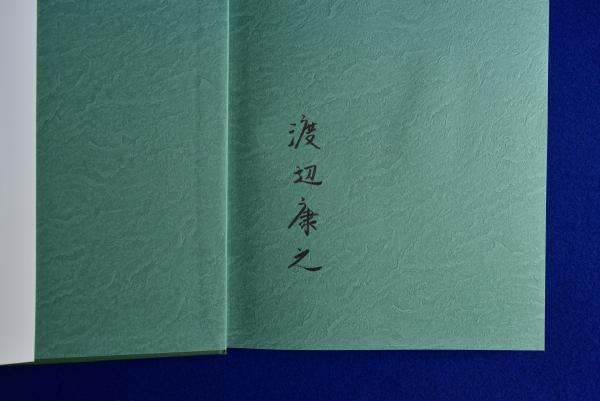 渡辺康之